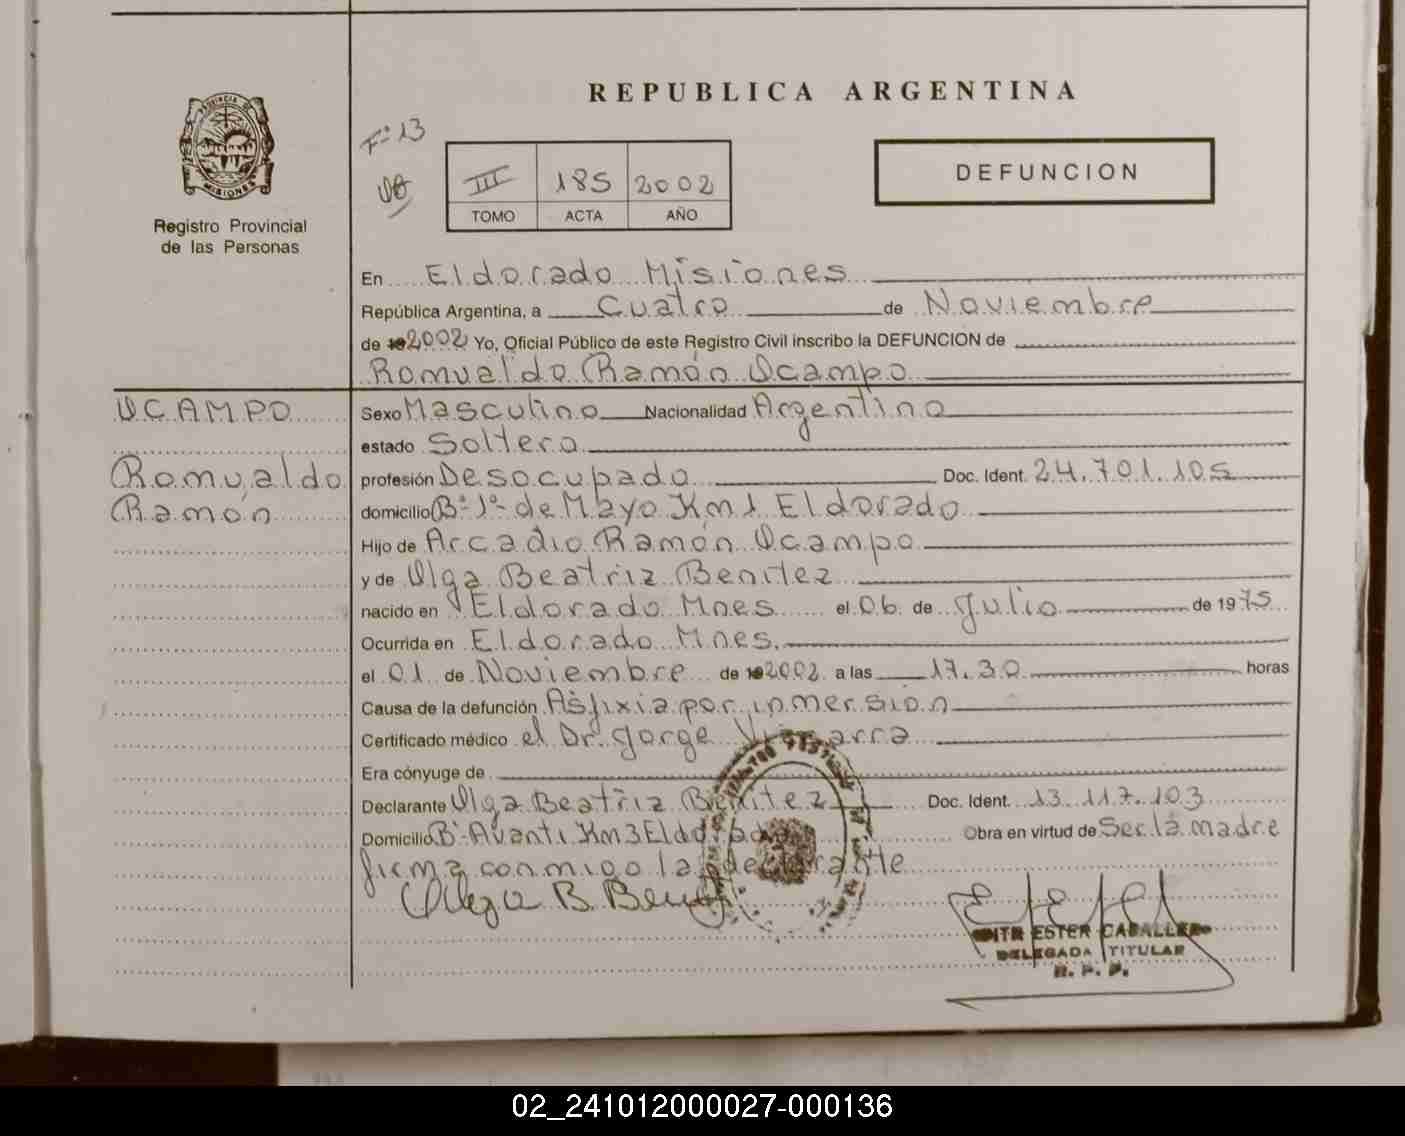 REPUBLICA ARGENTINA
PROVINCIA DE
MISIONES
Registro Provincial
de las Personas
Fº 13
III 185 2002
TOMO ACTA AÑO
DEFUNCION
En Eldorado Misiones
República Argentina, a Cuatro de Noviembre
de 19 2002 Yo, Oficial Público de este Registro Civil inscribo la DEFUNCION de
Romualdo Ramón Ocampo
OCAMPO
Romualdo
Ramón
Sexo Masculino Nacionalidad Argentino
estado Soltero
profesión Desocupado Doc. Ident. 24.701.105
domicilio Bº 1º de Mayo Km 1 Eldorado
Hijo de Arcadio Ramón Ocampo
y de Olga Beatriz Benitez
nacido en Eldorado Mnes el 06 de Julio de 1975
Ocurrida en Eldorado Mnes.
el 01 de Noviembre de 19 2002 a las 17.30 horas
Causa de la defunción Asfixia por inmersión
Certificado médico el Dr. Jorge
Era cónyuge de
Declarante Olga Beatriz Benitez Doc. Ident. 13.117.103
Domicilio Bº Avanti Km 3 Eldorado Obra en virtud de Ser la madre
firma conmigo la declarante
Olga B. Beni
ESTER CABALLERO
DELEGADA TITULAR
R. P. P.
02_241012000027-000136